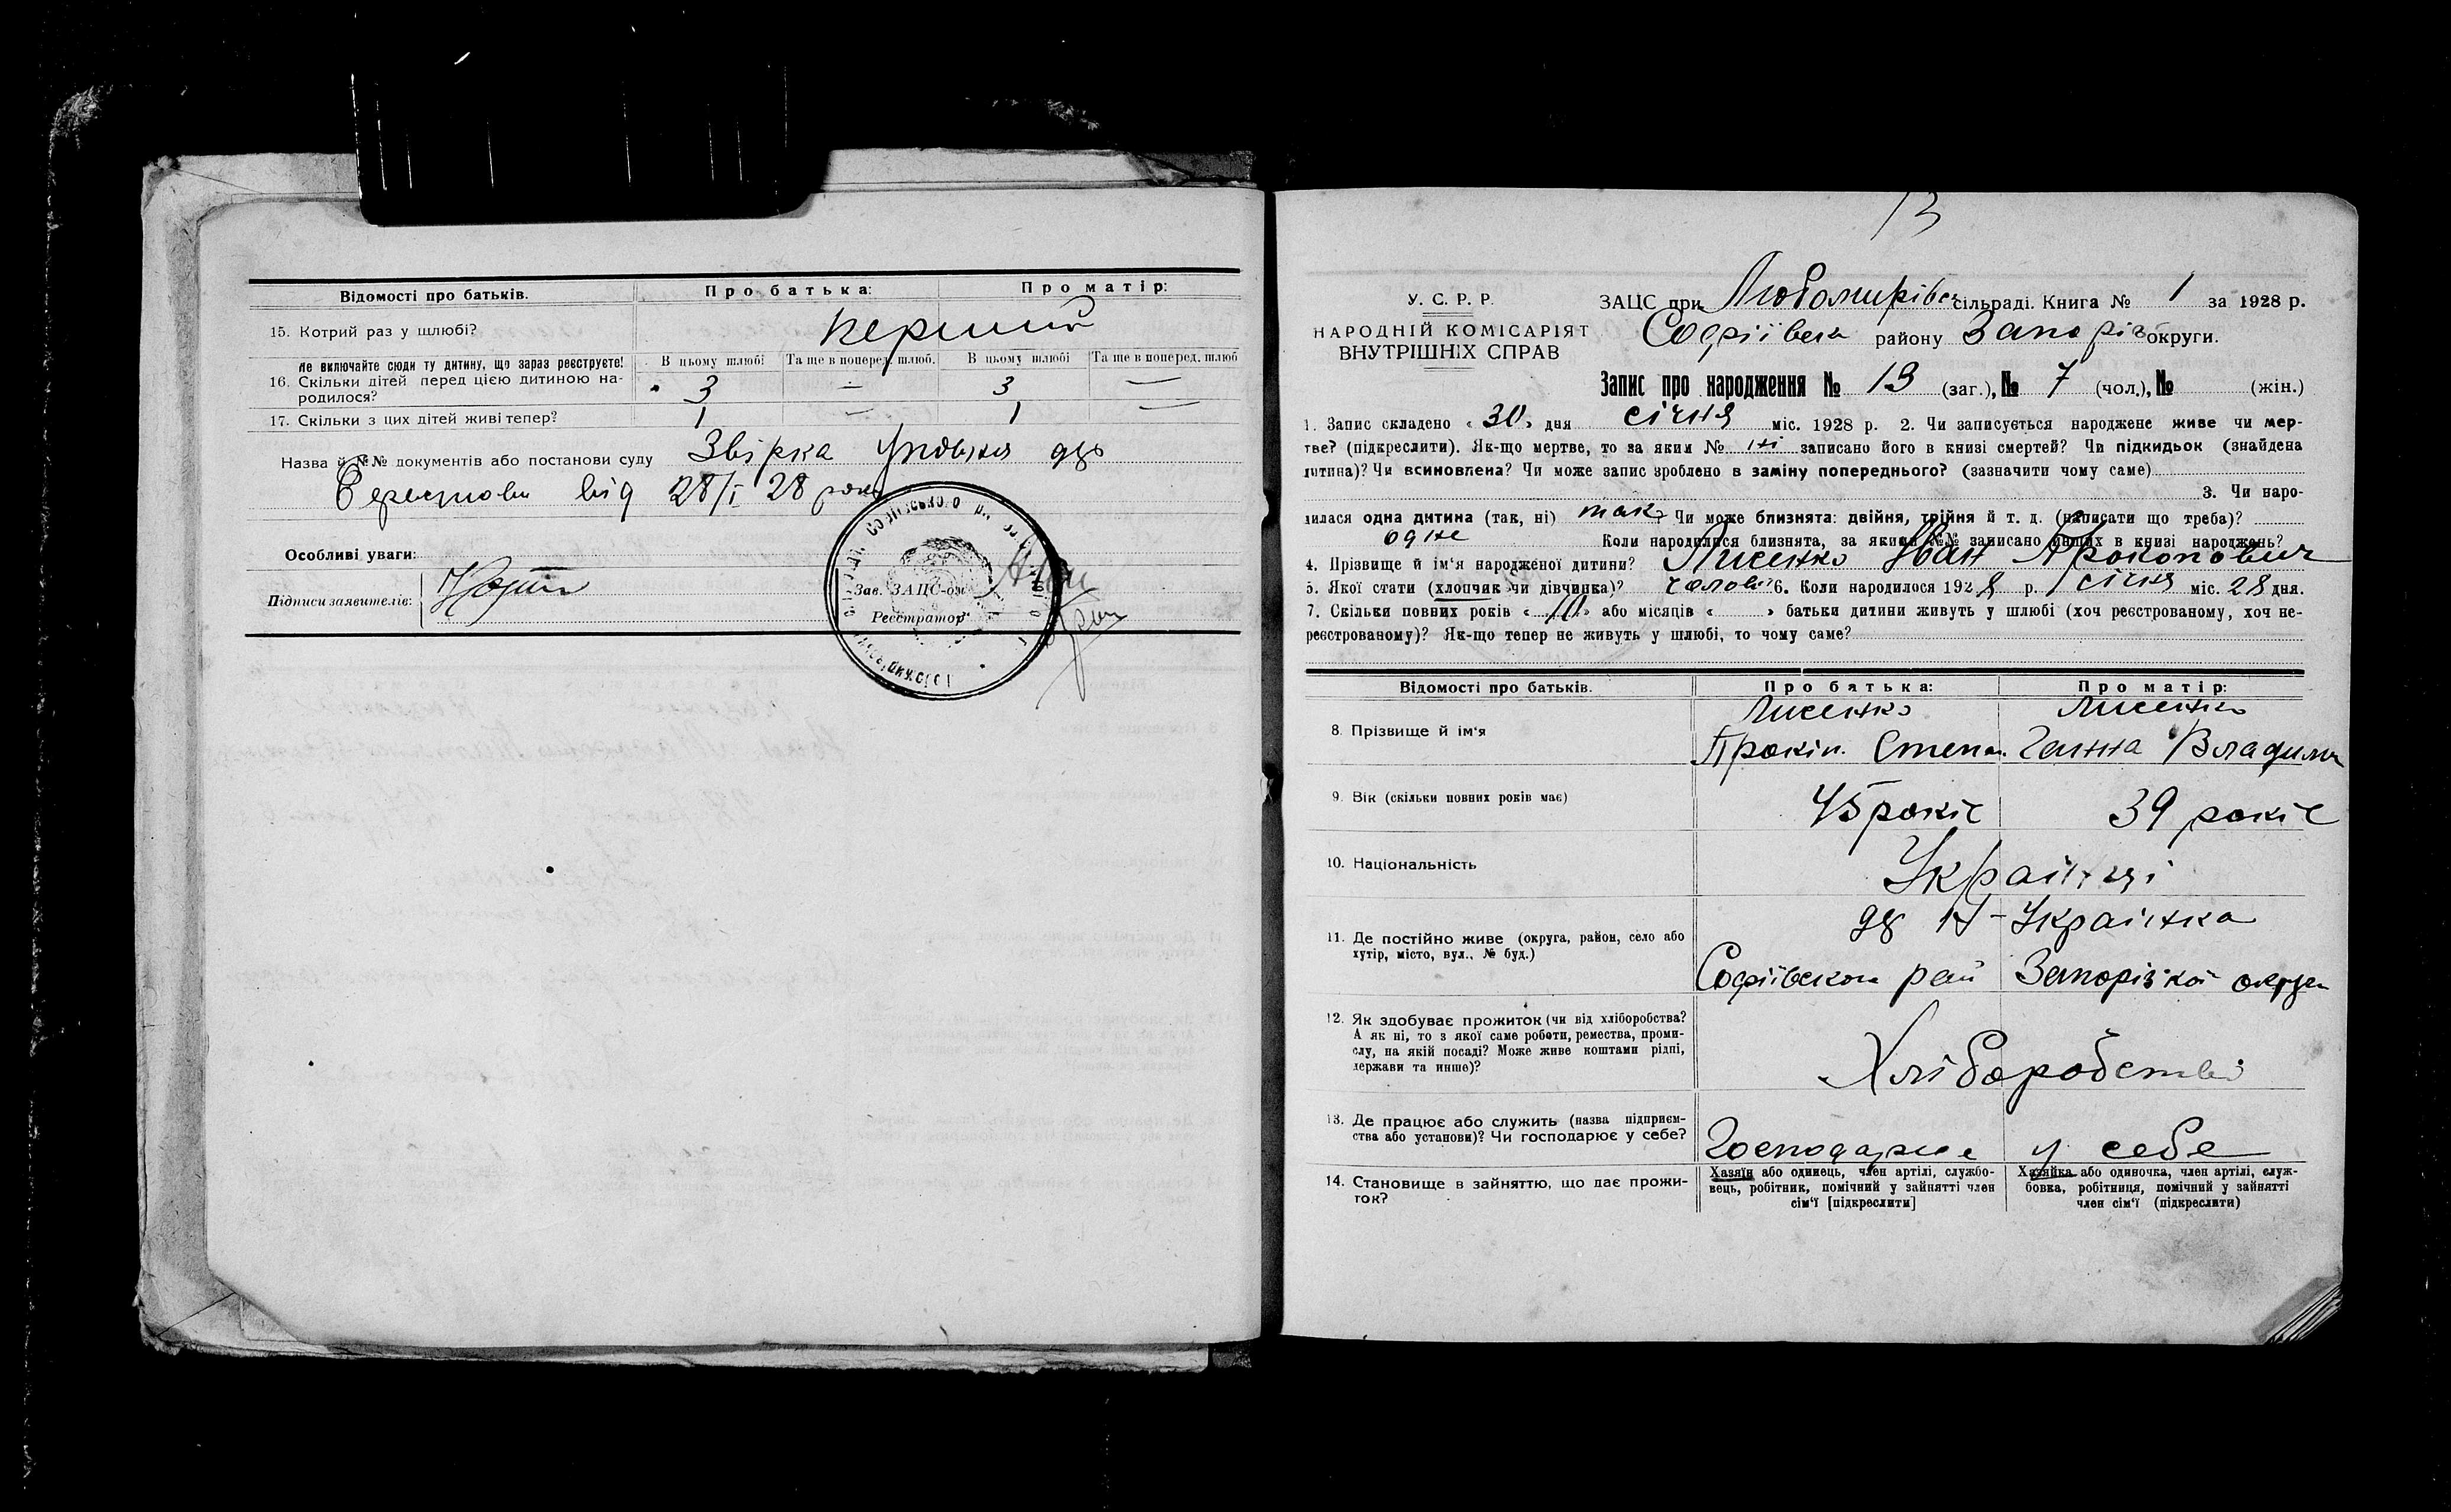 Відомості про батьків. Про батька: Про матір:
15. Котрий раз у шлюбі? перший
Не включайте сюди ту дитину, що зараз реєструєте! В цьому шлюбі Та ще в поперед. шлюб. В цьому шлюбі Та ще в поперед. шлюб
16. Скільки дітей перед цією дитиною народилося? 3 — 3 —
17. Скільки з цих дітей живі тепер? 1 — 1 —
Назва й №№ документів або постанови суду Звірка
від 28/I 28 року
Особливі уваги:
Підписи заявителів:
Зав. ЗАЦС-ом
Реєстратор
13
У. С. Р. Р.
НАРОДНІЙ КОМІСАРІЯТ
ВНУТРІШНІХ СПРАВ
ЗАЦС при Любомирівс сільраді. Книга № 1 за 1928 р.
Софіївськ району Запоріз округи.
Запис про народження № 13 (заг.), № 7 (чол.), № (жін.)
1. Запис складено « 30 » дня січня міс. 1928 р. 2. Чи записується народжене живе чи мер-
тве? (підкреслити). Як-що мертве, то за яким № ні записано його в книзі смертей? Чи підкидьок (знайдена
дитина)? Чи всиновлена? Чи може запис зроблено в заміну попереднього? (зазначити чому саме)
3. Чи наро-
дилася одна дитина (так, ні) так Чи може близнята: двійня, трійня й т. д. (написати що треба)?
одне Коли народилися близнята, за якими №№ записано инших в книзі народжень?
4. Прізвище й ім'я народженої дитини? Лисенко Іван Прокопович
5. Якої стати (хлопчик чи дівчинка)? чолові 6. Коли народилося 1928 р. січня міс. 28 дня.
7. Скільки повних років « 10 » або місяців « » батьки дитини живуть у шлюбі (хоч реєстрованому, хоч не-
реєстрованому)? Як-що тепер не живуть у шлюбі, то чому саме?
Відомості про батьків. Про батька: Про матір:
8. Прізвище й ім'я Лисенко Лисенко
Прокіп. Степан. Ганна Владими
9. Вік (скільки повних років має) 45 років 39 років
10. Національність Українці
11. Де постійно живе (округа, район, село або
хутір, місто, вул., № буд.) Н-Українка
Софіївськ рай Запорізкої округи
12. Як здобуває прожиток (чи від хліборобства?
А як ні, то з якої саме роботи, ремества, проми-
слу, на якій посаді? Може живе коштами рідні,
держави та инше)? Хліборобство
13. Де працює або служить (назва підприєм-
ства або установи)? Чи господарює у себе? Господарює у себе
14. Становище в зайняттю, що дає прожи-
ток?
Хазяїн або одинець, член артілі, службо-
вець, робітник, помічний у зайнятті член
сім'ї [підкреслити]
Хазяйка або одиночка, член артілі, служ-
бовка, робітниця, помічний у зайнятті
член сім'ї (підкреслити)